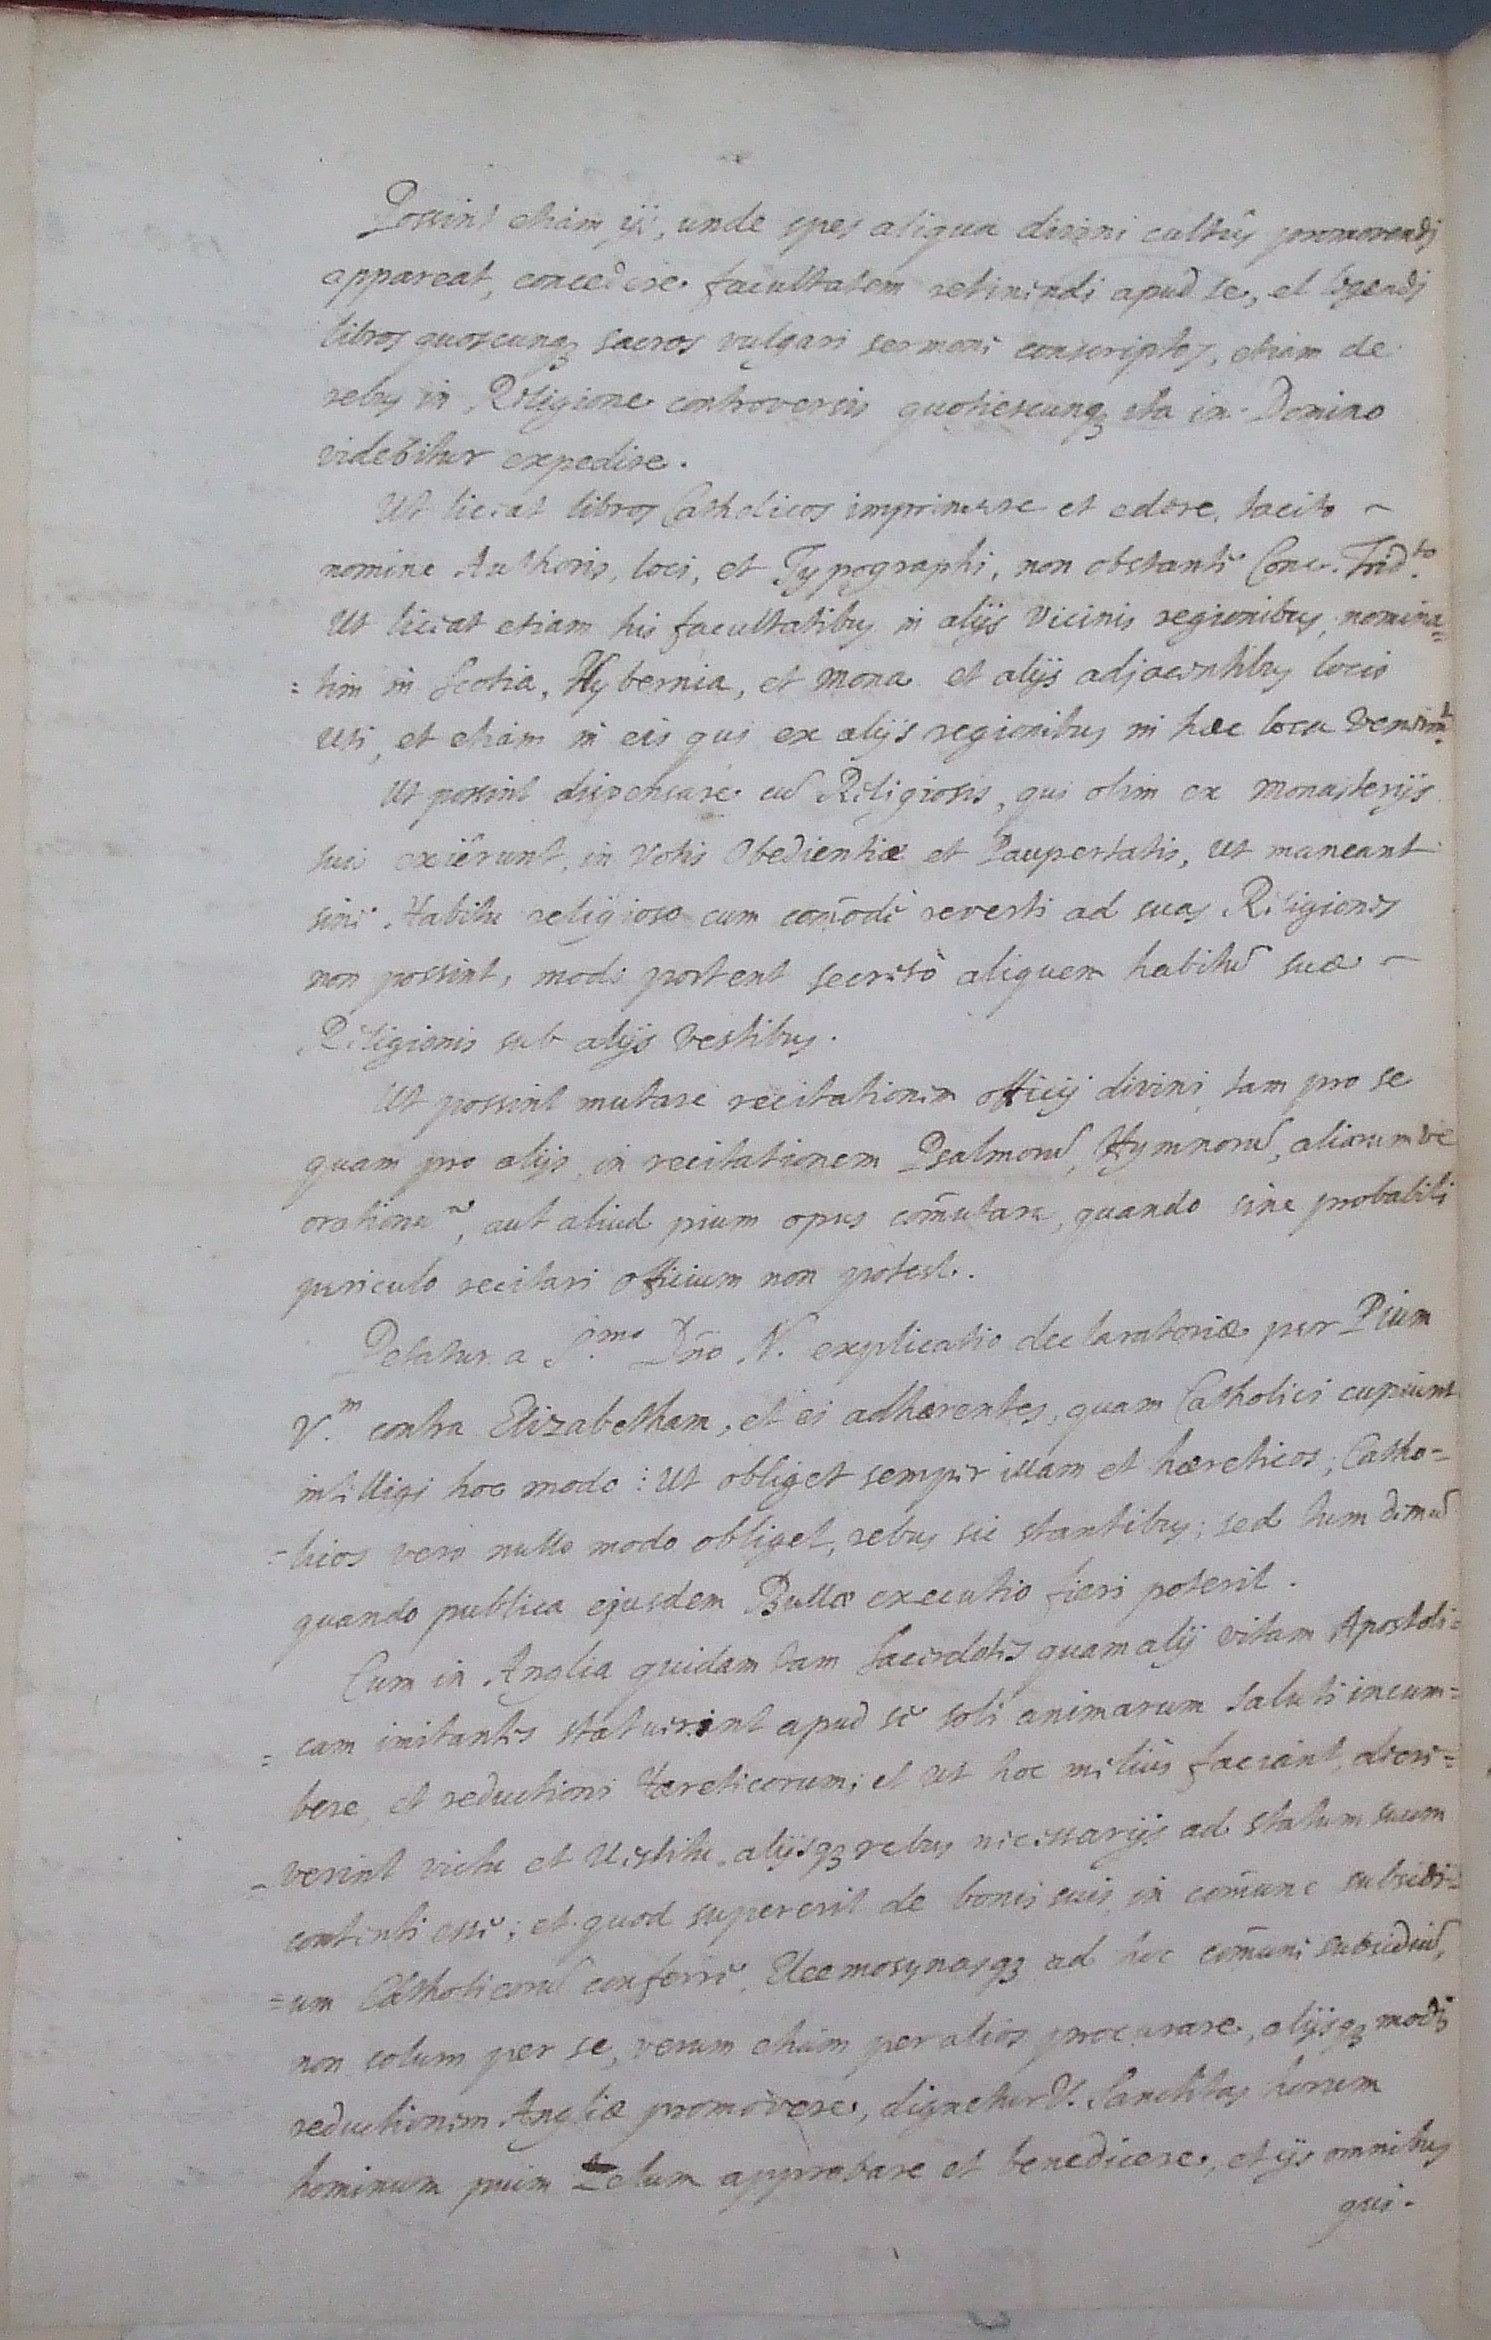 Possint etiam ijs, unde spes aliqua divini cultûs promovendi
appareat, concedere facultatem retinendi apud se, et legendi
libros quoscunq3 sacros vulgari sermone conscriptos, etiam de
rebus in Religione controversis quotiescunq3 ita in Domino
videbitur expedire.
Ut liceat libros Catholicos imprimere et edere, tacito ~
nomine Authoris, loci, et Typographi, non obstante Conc. Trid.to
Ut liceat etiam his facultatibus in alijs vicinis regionibus, nomina=
=tim in Scotia, Hybernia, et Mona et alijs adjacentibus locis
uti, et etiam in eis qui ex alijs regionibus in hæc loca venerint.
Ut possint dispensare cũ Religiosis, qui olim ex Monasterijs
suis exierunt, in Votis Obedientiæ et Paupertatis, ut maneant
sine Habitu religioso cum com̄odè reverti ad suas Religiones
non possint, modo portent secretò aliquem habitũ suæ ~
Religionis sub alijs vestibus.
Ut possint mutare recitationem officij divini, tam pro se
quam pro alijs, in recitationem Psalmorũ, Hymnorũ, aliarumve
orationũ, aut aliud pium opus com̄utare, quando sine probabili
periculo recitari officium non potest.
Petatur a S.mo Dño N. explicatio declaratoriæ per Pium
V.m contra Elizabetham, et ei adhærentes, quam Catholici cupiunt
intelligi hoc modo: Ut obliget semper illam et hæreticos; Catho=
=licos vero nullo modo obliget, rebus sic stantibus; sed tum demũ
quando publica ejusdem Bullæ executio fieri poterit.
Cum in Anglia quidam tam Sacerdotes quam alij vitam Apostoli=
=cam imitantes statuerint apud se soli animarum saluti incum=
bere, et reductioni Hæreticorum; et ut hoc melius faciant, decre=
=verint victu et vestitu, alijsq3 rebus necessarijs ad statum suum
contenti esse; et quod supererit de bonis suis, in com̄une subsidi=
=um Catholicorũ conferre, Eleemosynasq3 ad hoc com̄une subsidiũ,
non solum per se, verum etiam per alios procurare, alijsq3 modis
reductionem Angliæ promovere, dignetur V. Sanctitas horum
hominum pium Zelum approbare et benedicere, et ijs omnibus
qui.